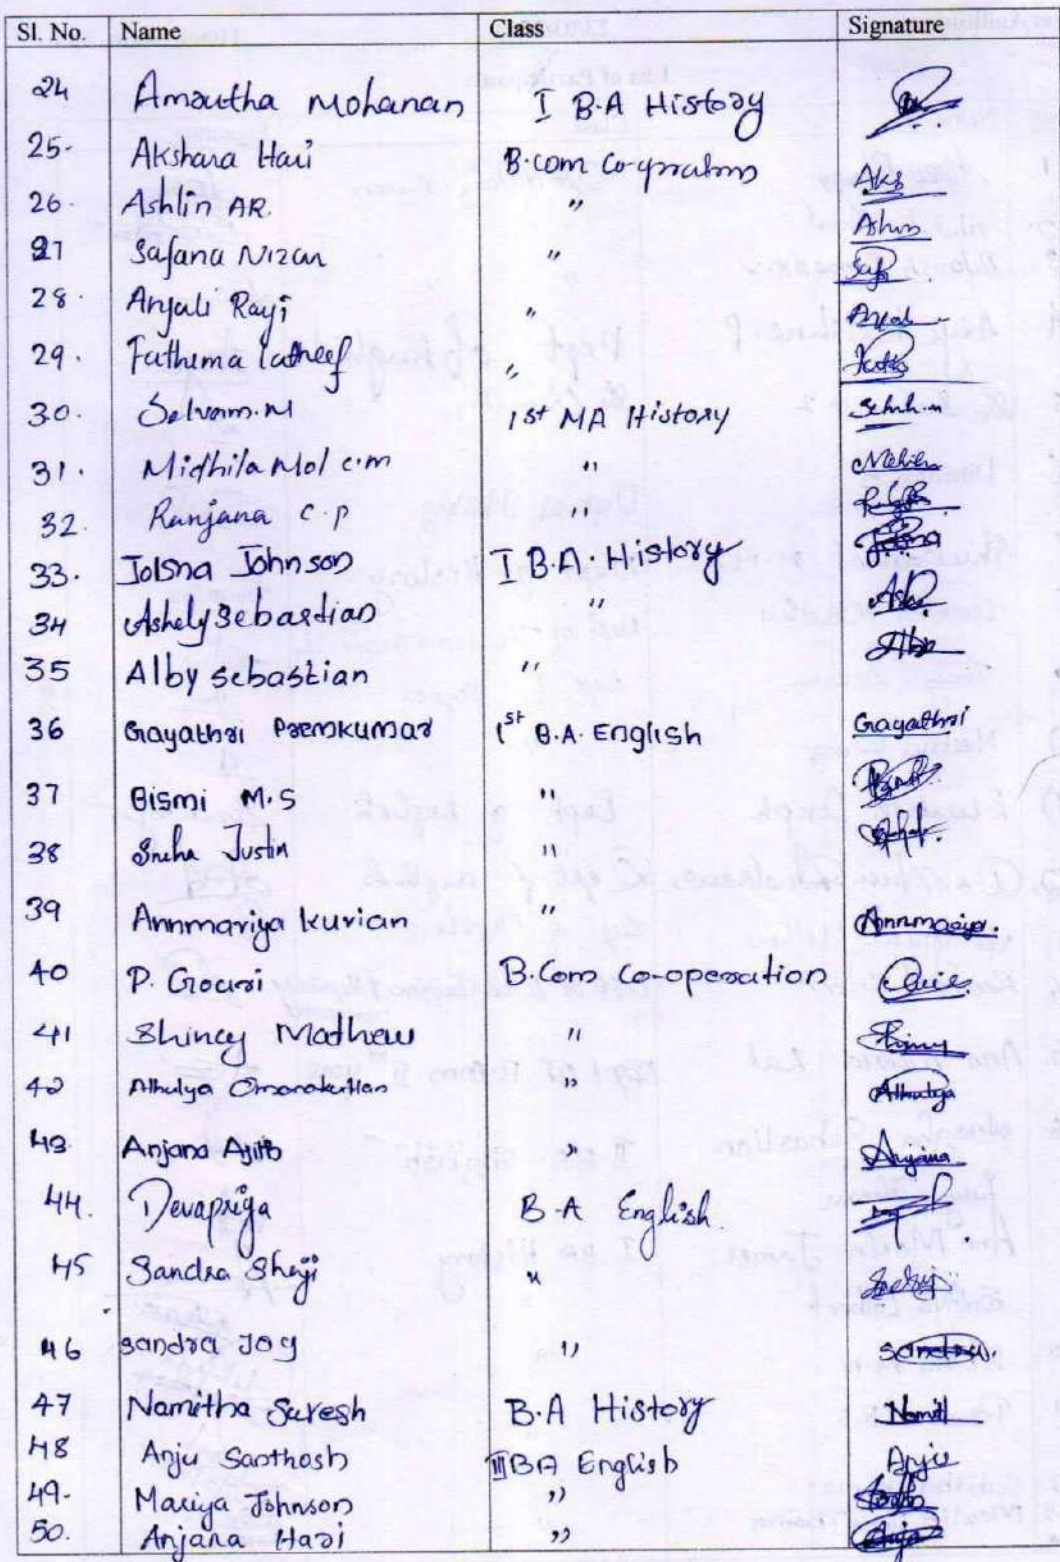 Sl. No. Name Class Signature
24 Amrutha Mohanan I B.A History
25. Akshara Hari B.com Co-operations Aks
26. Ashlin AR. " Ashlin
27 Safana Nizan " Saf
28. Anjali Rayi " Anjali
29. Fathima Latheef "
30. Selvam.M 1st MA History
31. Midhila Mol c.m "
32. Ranjana C.P "
33. Jolsna Johnson I B.A. History Jolsna
34 Ashely Sebastian " Ash
35 Alby Sebastian " Alby
36 Gayathri Premkumar 1st B.A. English Gayathri
37 Bismi M.S "
38 Sneha Justin "
39 Annmariya Kurian " Annmariya.
40 P. Gouri B.Com Co-operation
41 Shincy Mathew " Shincy
42 Athulya Omanakuttan " Athulya
43 Anjana Ajith " Anjana
44. Devapriya B.A English.
45 Sandra Shaji "
46 Sandra Joy " Sandra.
47 Namitha Suresh B.A History Namit
48 Anju Santhosh III BA English Anju
49. Mariya Johnson "
50. Anjana Hari " Anja